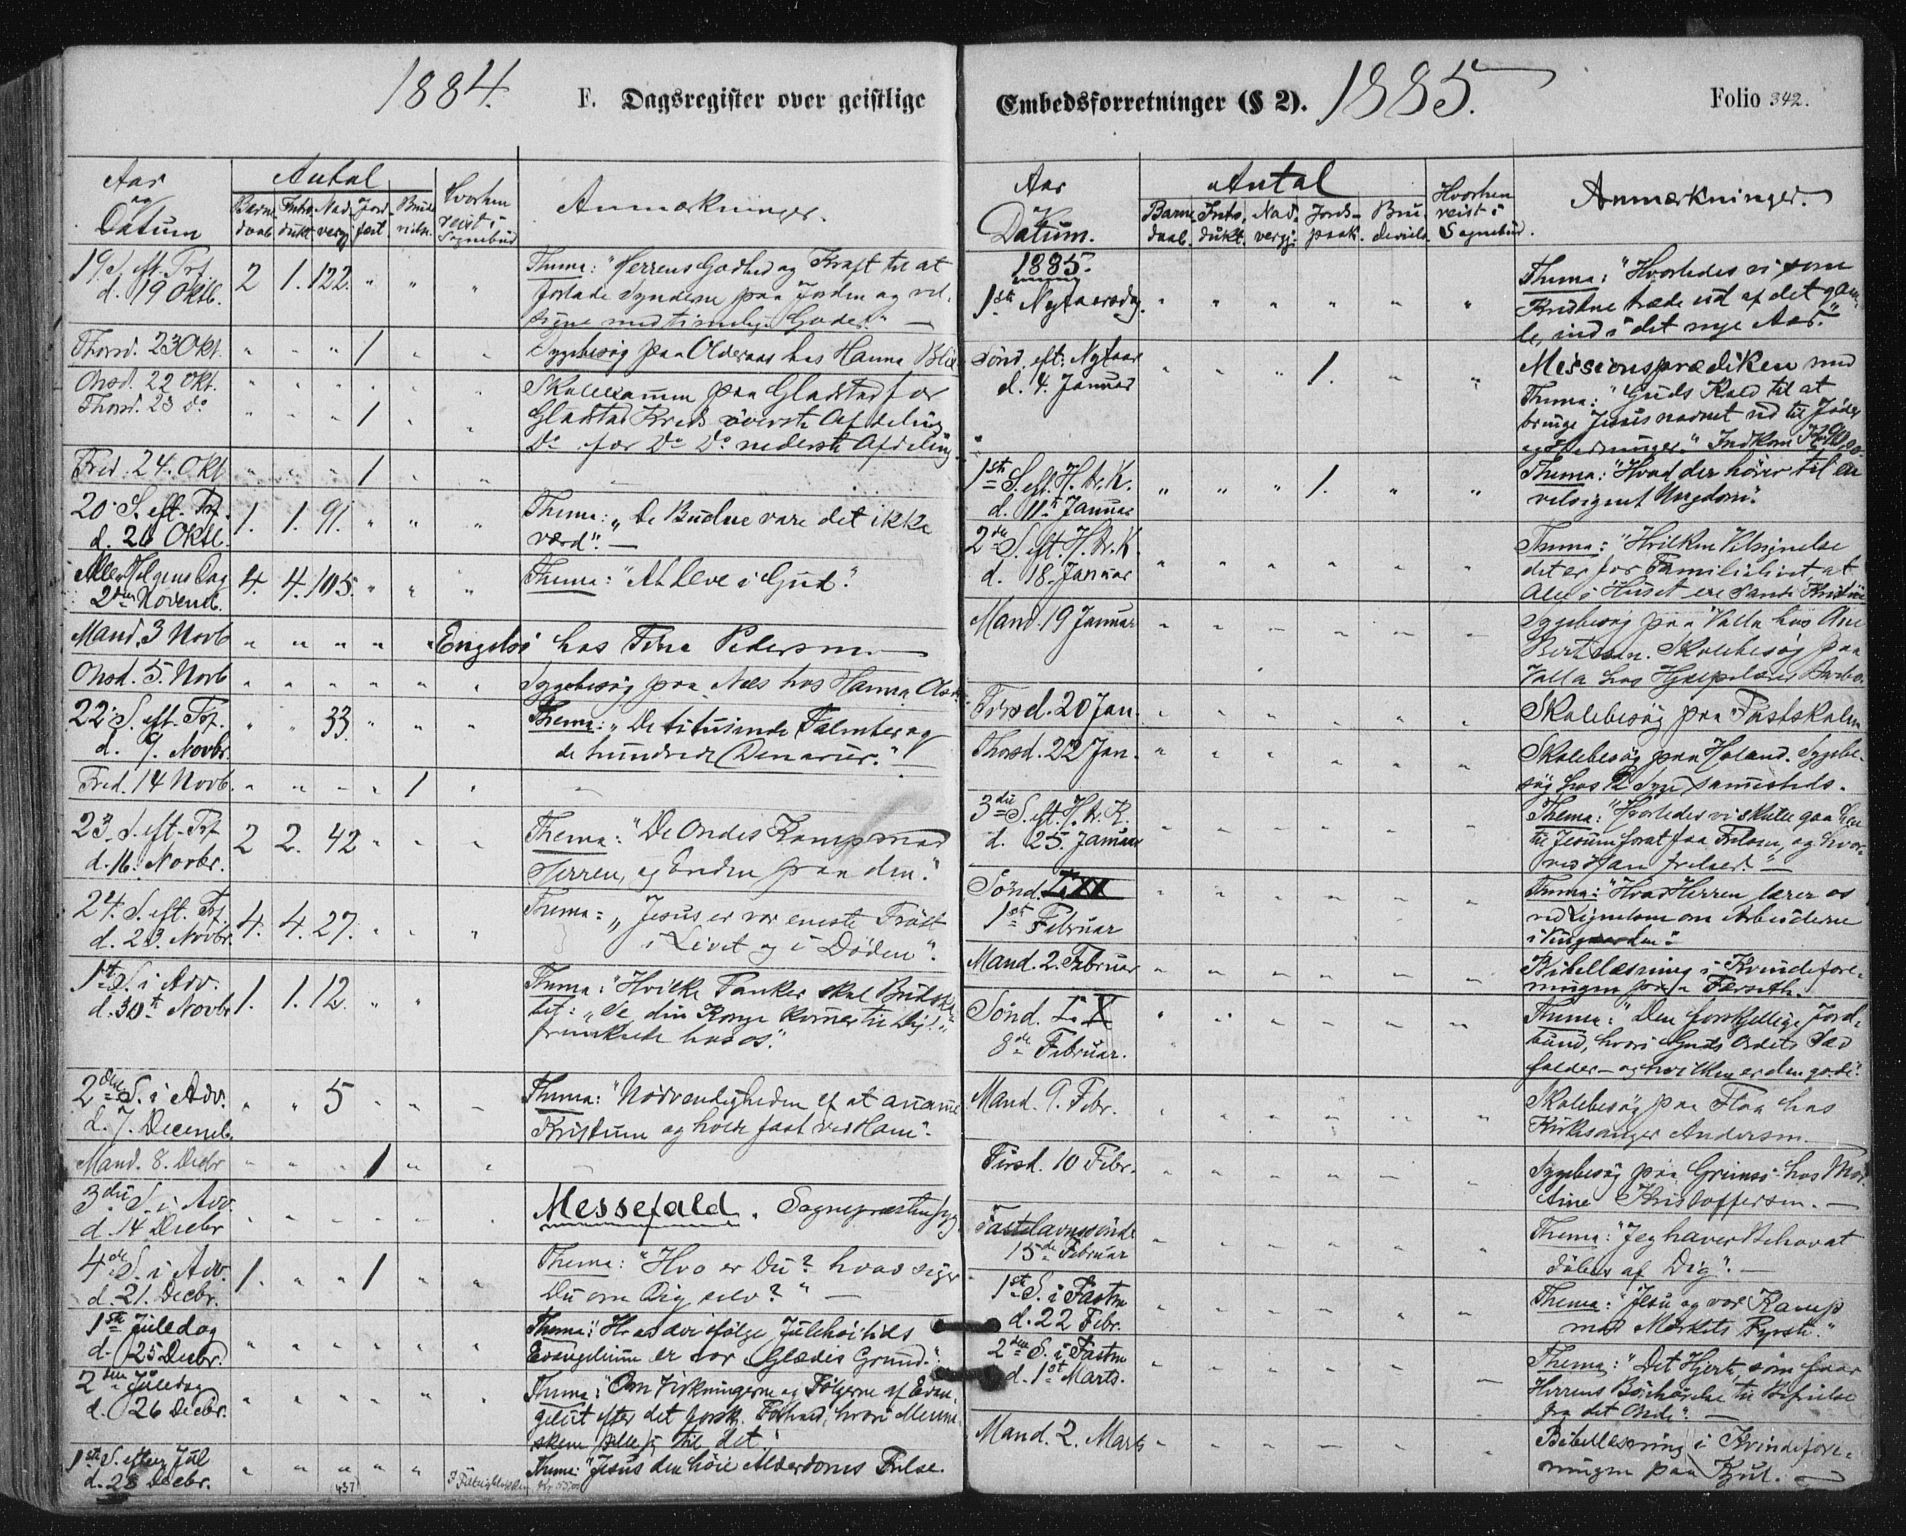 1884.
F. Dagsregister over geistlige
Aar
og
Datum
Antal
Barne
daab
Intro
dukt.
Nad
verg.
Jord
fæst
Brud
vielse
Hvorhen
reist i
Sognebud
Anmærkninger.
19 S. eft. Trf.
d. 19 Oktb.
2 1. 122. " " "
Thema: "Herrens Godhed og Kraft til at
forlade Synderne paa Jorden og vel-
signe med timelige Goder." —
Thorsd. 23 Okt. " " " 1 " "
Sygebesøg paa Olderaas hos Hanna
Onsd. 22 Okt.
Thorsd. 23 Do
" " " 1 " "
Skoleexamen paa Gladstad for
Gladstad Kreds øverste Afdeling
Do for Do Do nederste Afdeling
Fred. 24. Okt " " " 1 " "
20 S. eft. Trf.
d. 26 Oktb.
1. 1. 91. " " "
Thema: "De Budne vare det ikke
værd". —
Alle Helgens Dag
2den Novemb.
4. 4. 105. " " "
Thema: "At leve i Gud".
Mand. 3 Novb " " " " "
hos Tina Pedersen. —
Onsd. 5. Novb " " " " " "
Sygebesøg paa Næs hos Hanna
22 S. eft. Trf.
d. 9. Novbr.
" " 33. " " "
Thema: "De titusinde Talenter og
de hundrede Denarier."
Fred. 14 Novb. " " " " 1 "
23. S. eft. Trf
d. 16. Novbr.
2 2. 42 " " "
Thema: "De Ondes Kamp mod
Herren, og Enden paa den".
24. S. eft. Trf.
d. 23. Novbr.
4. 4. 27. " " "
Thema: "Jesus er vor eneste Trøst
i Livet og i Døden".
1st S. i Adv.
d. 30te Novbr
1. 1. 12. " "
Thema: "Hvilke Tanker skal Budska-
bet: "Se, din Konge kommer til Dig!"
fremkalde hos os".
2den S. i Adv.
d. 7. Decemb.
" " 5 " " "
Thema: "Nødvendigheden af at annamme
Kristum og holde fast ved Ham".
Mand. 8. Decbr " " " 1 " "
3die S. i Adv.
d. 14 Decbr
" " " " " "
Messefald. Sognepræsten syg.
4de S. i Adv.
d. 21. Decbr.
1. " " 1 " "
Thema: "Hvo er Du? hvad siger
Du om Dig selv?" —
1ste Juledag
d. 25 Decbr.
" " " " " "
Evangelium er vor Glædes Grund."
2den Juledag
d. 26 Decbr.
" " " " " "
Thema: "Om Virkningerne og Følgerne af Evan-
geliet efter det forsk. Forhold, hvori Menne-
sken stille sig til det."
1ste S. efter Jul
d. 28 Decbr.
" " " " "
437
Thema: "Jesus den høie Alderdoms Frelse.
Embedsforretninger (§ 2).
1885.
Folio 342.
Aar
og
Datum.
Antal
Barne
daab.
Intro.
dukt.
Nad.
vergj.
Jords-
paak.
Bru
devielse
Hvorhen
reist i
Sognebud.
Anmærkninger.
1885.
1ste Nytaarsdag.
" " " " " "
Thema: "Hvorledes vi som
Kristne træde ud af det gam-
le, ind i det nye Aar."
Sønd. eft. Nytaar
d. 4. Januar
" " " 1. " "
Missionsprædiken med
Thema: "Guds Kald til at
bringe Jesusnavnet ud til Jøder
og Hedninger." Indkom
1ste S. eft. H. tr. K.
d. 11te Januar
" " " 1. " "
Thema: "Hvad der hører til en
velsignet Ungdom".
2den S. eft. H. tr. K
d. 18. Januar
" " " " " "
Thema: "Hvilken Velsignelse
det er for Familielivet, at
Alle i Huset ere sande Kristne
Mand. 19 Januar " " " " " "
Sygebesøg paa Valla hos Ane
Berntsen. Skolebesøg paa
Valla hos Hjælpelærer
Tirsd. 20 Jan. " " " " " "
Skolebesøg paa Fastskolen
Thorsd. 22 Jan. " " " " " "
Skolebesøg paa Høland. Sygebe-
søg hos 2 Syge sammesteds.
3die S. eft. H. tr. K.
d. 25. Januar
" " " " " "
Thema: "Hvorledes vi skulle gaa hen
til Jesum forat faa Frelsen, og hvor-
ved Han frelser." —
Sønd.
1ste Februar
" " " " " "
Thema: "Hvad Herren lærer os
ved Lignelsen om Arbeiderne
i Vingaarden".
Mand. 2. Februar " " " " " "
Bibellæsning i Kvindefore-
ningen paa Færseth.
Sønd.
8de Februar.
" " " " " "
Thema: "Den forskjellige Jord-
bund, hvori Guds Ords Sæd
falder — og hvilken er den gode".
Mand. 9. Febr. " " " " " "
Skolebesøg paa Floa hos
Kirkesanger Andersen.
Tirsd. 10 Febr. " " " " " "
Sygebesøg paa Grimsø hos
Kristoffersen. —
Fastelavnssøndag
15de Februar
" " " " " "
Thema: "Jeg haver Behov at
døbes af Dig". —
1ste S. i Fasten
d. 22 Febr.
" " " " " "
Thema: "Jesu og vor Kamp
med Mørkets Fyrste."
2den S. i Fasten
d. 1ste Marts.
" " " " " "
Thema: "Det Hjerte, som faar
Herrens Bønhørelse til Befrielse
fra det Onde". —
Mand. 2. Marts " " " " " "
Bibellæsning i Kvindefore-
ningen paa Kjul. —